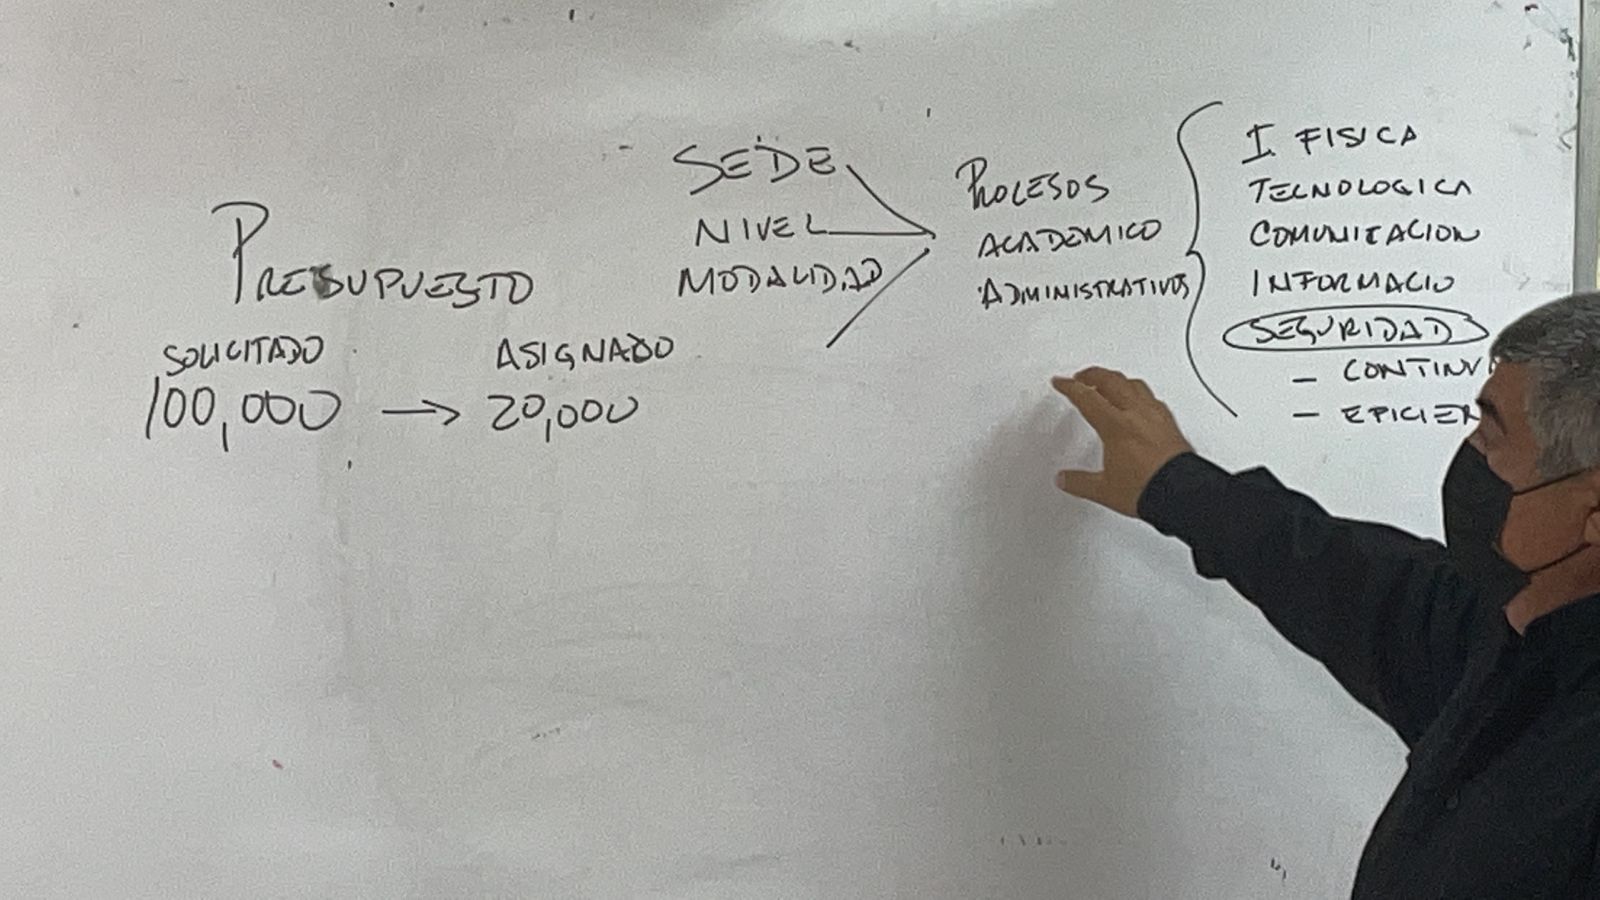 PRESUPUESTO
SOLICITADO ASIGNADO
100,000 → 20,000
SEDE
NIVEL
MODALIDAD
PROCESOS
ACADEMICO
ADMINISTRATIVOS
I. FISICA
TECNOLOGICA
COMUNICACION
INFORMACIO
SEGURIDAD
- CONTINU
- EFICIEN